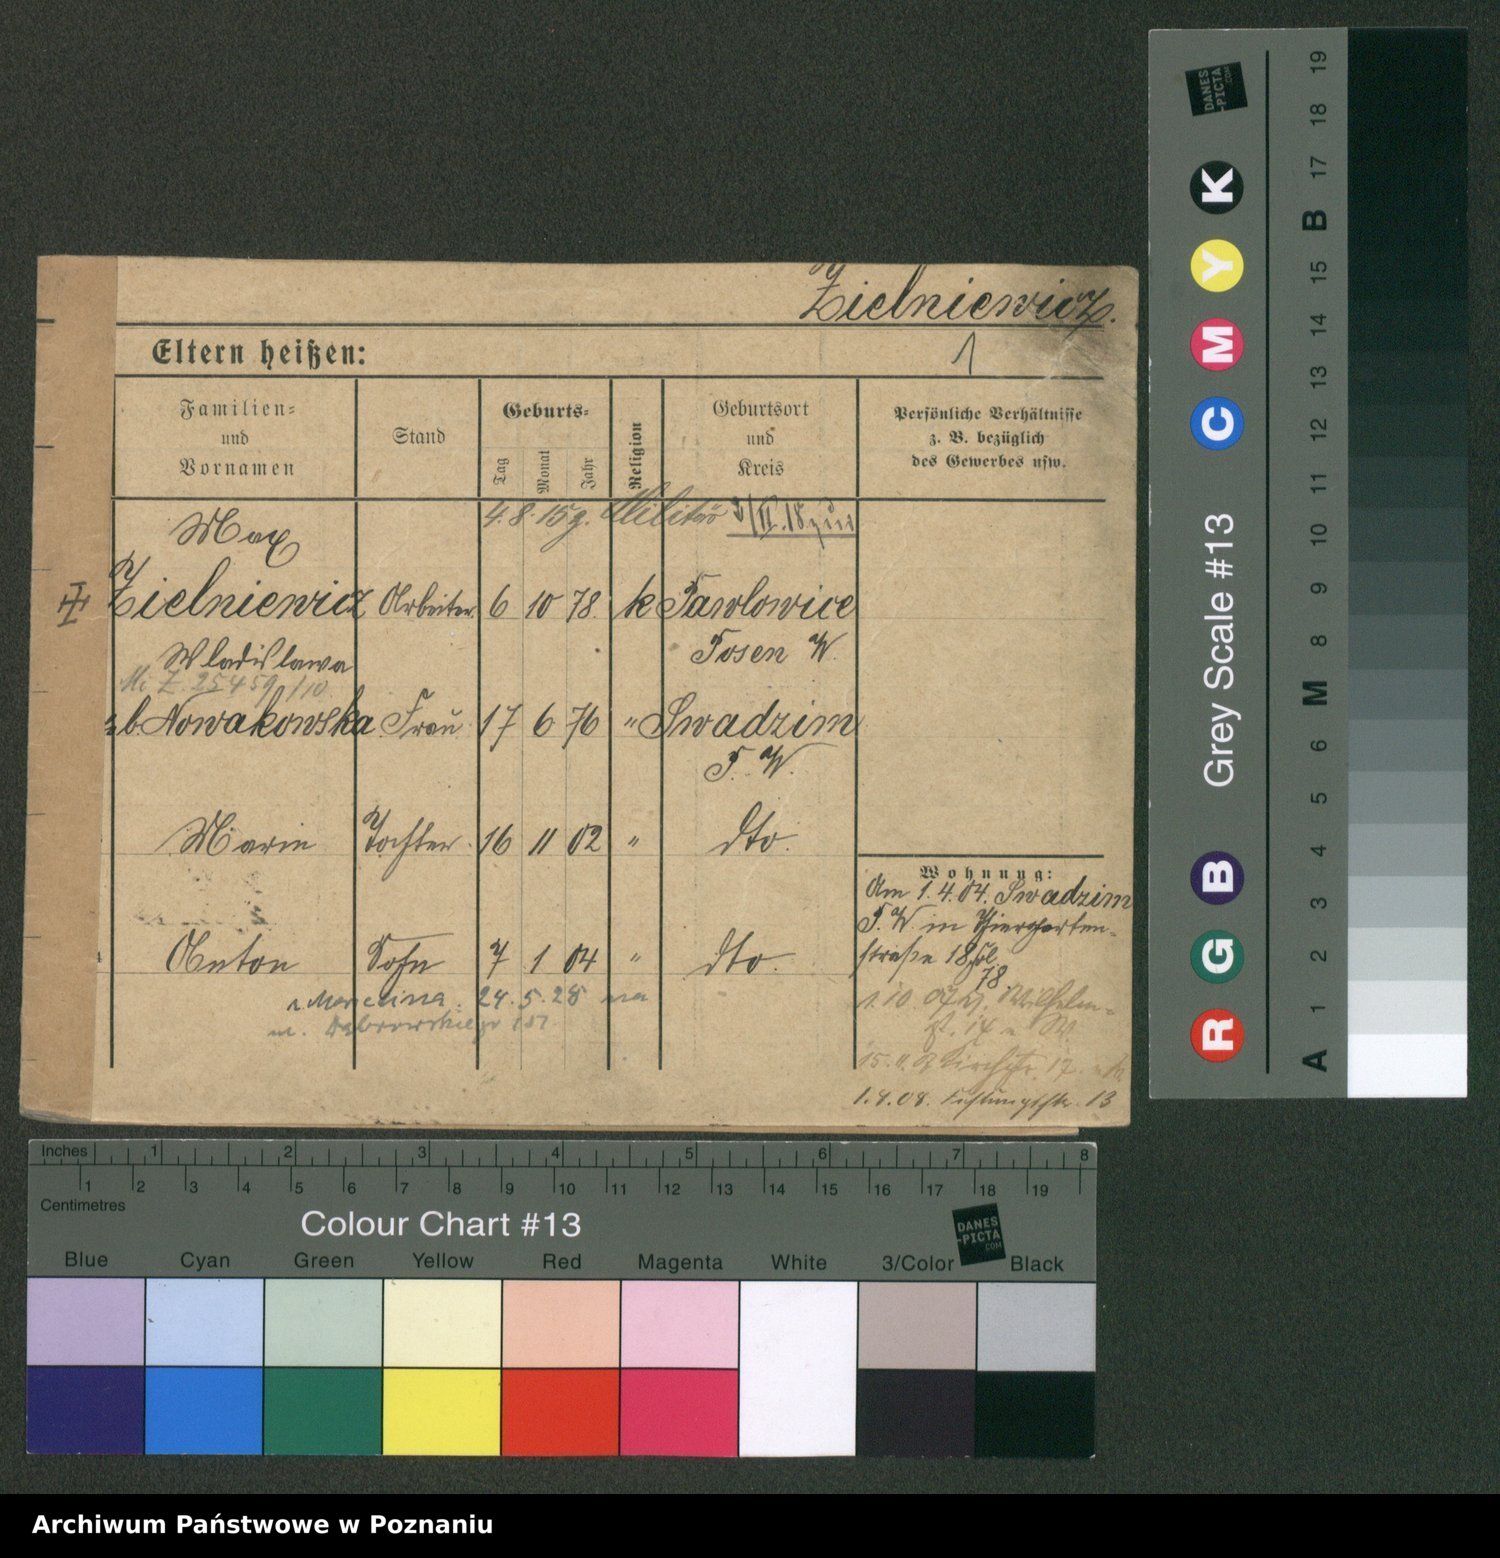 Zielniewicz.
1
Eltern heißen:
Familien=
und
Vornamen
Stand
Geburts=
Tag
Monat
Jahr
Religion
Geburtsort
und
Kreis
Persönliche Verhältnisse
z. B. bezüglich
des Gewerbes usw.
4. 8. 15 z. Militär 3/II. 18 zur
Max
Zielniewicz Arbeiter 6 10 78. k Pawlowice
Posen W.
Wladislawa
Mi Z. 25459/10.
b. Nowakowska Frau 17 6 76 " Swadzim
P. W.
Marie Tochter 16 11 02 " dto.
Anton Sohn 7 1 04 " dto.
z Marcina 24.5.28 na
Dąbrowskiego
Wohnung:
Am 1.4.04. Swadzim
P. W. in Thiergarten-
straße 18
78.
1. 10. 07 Wilhelm-
15. 11.
1.4.08. Festungsstr. 13
DANES
-PICTA
.COM
K
Y
M
C
B
G
R
Grey Scale #13
A 1 2 3 4 5 6 M 8 9 10 11 12 13 14 15 B 17 18 19
Inches 1 2 3 4 5 6 7 8
1 2 3 4 5 6 7 8 9 10 11 12 13 14 15 16 17 18 19
Centimetres
Colour Chart #13
DANES
-PICTA
.COM
Blue Cyan Green Yellow Red Magenta White 3/Color Black
Archiwum Państwowe w Poznaniu